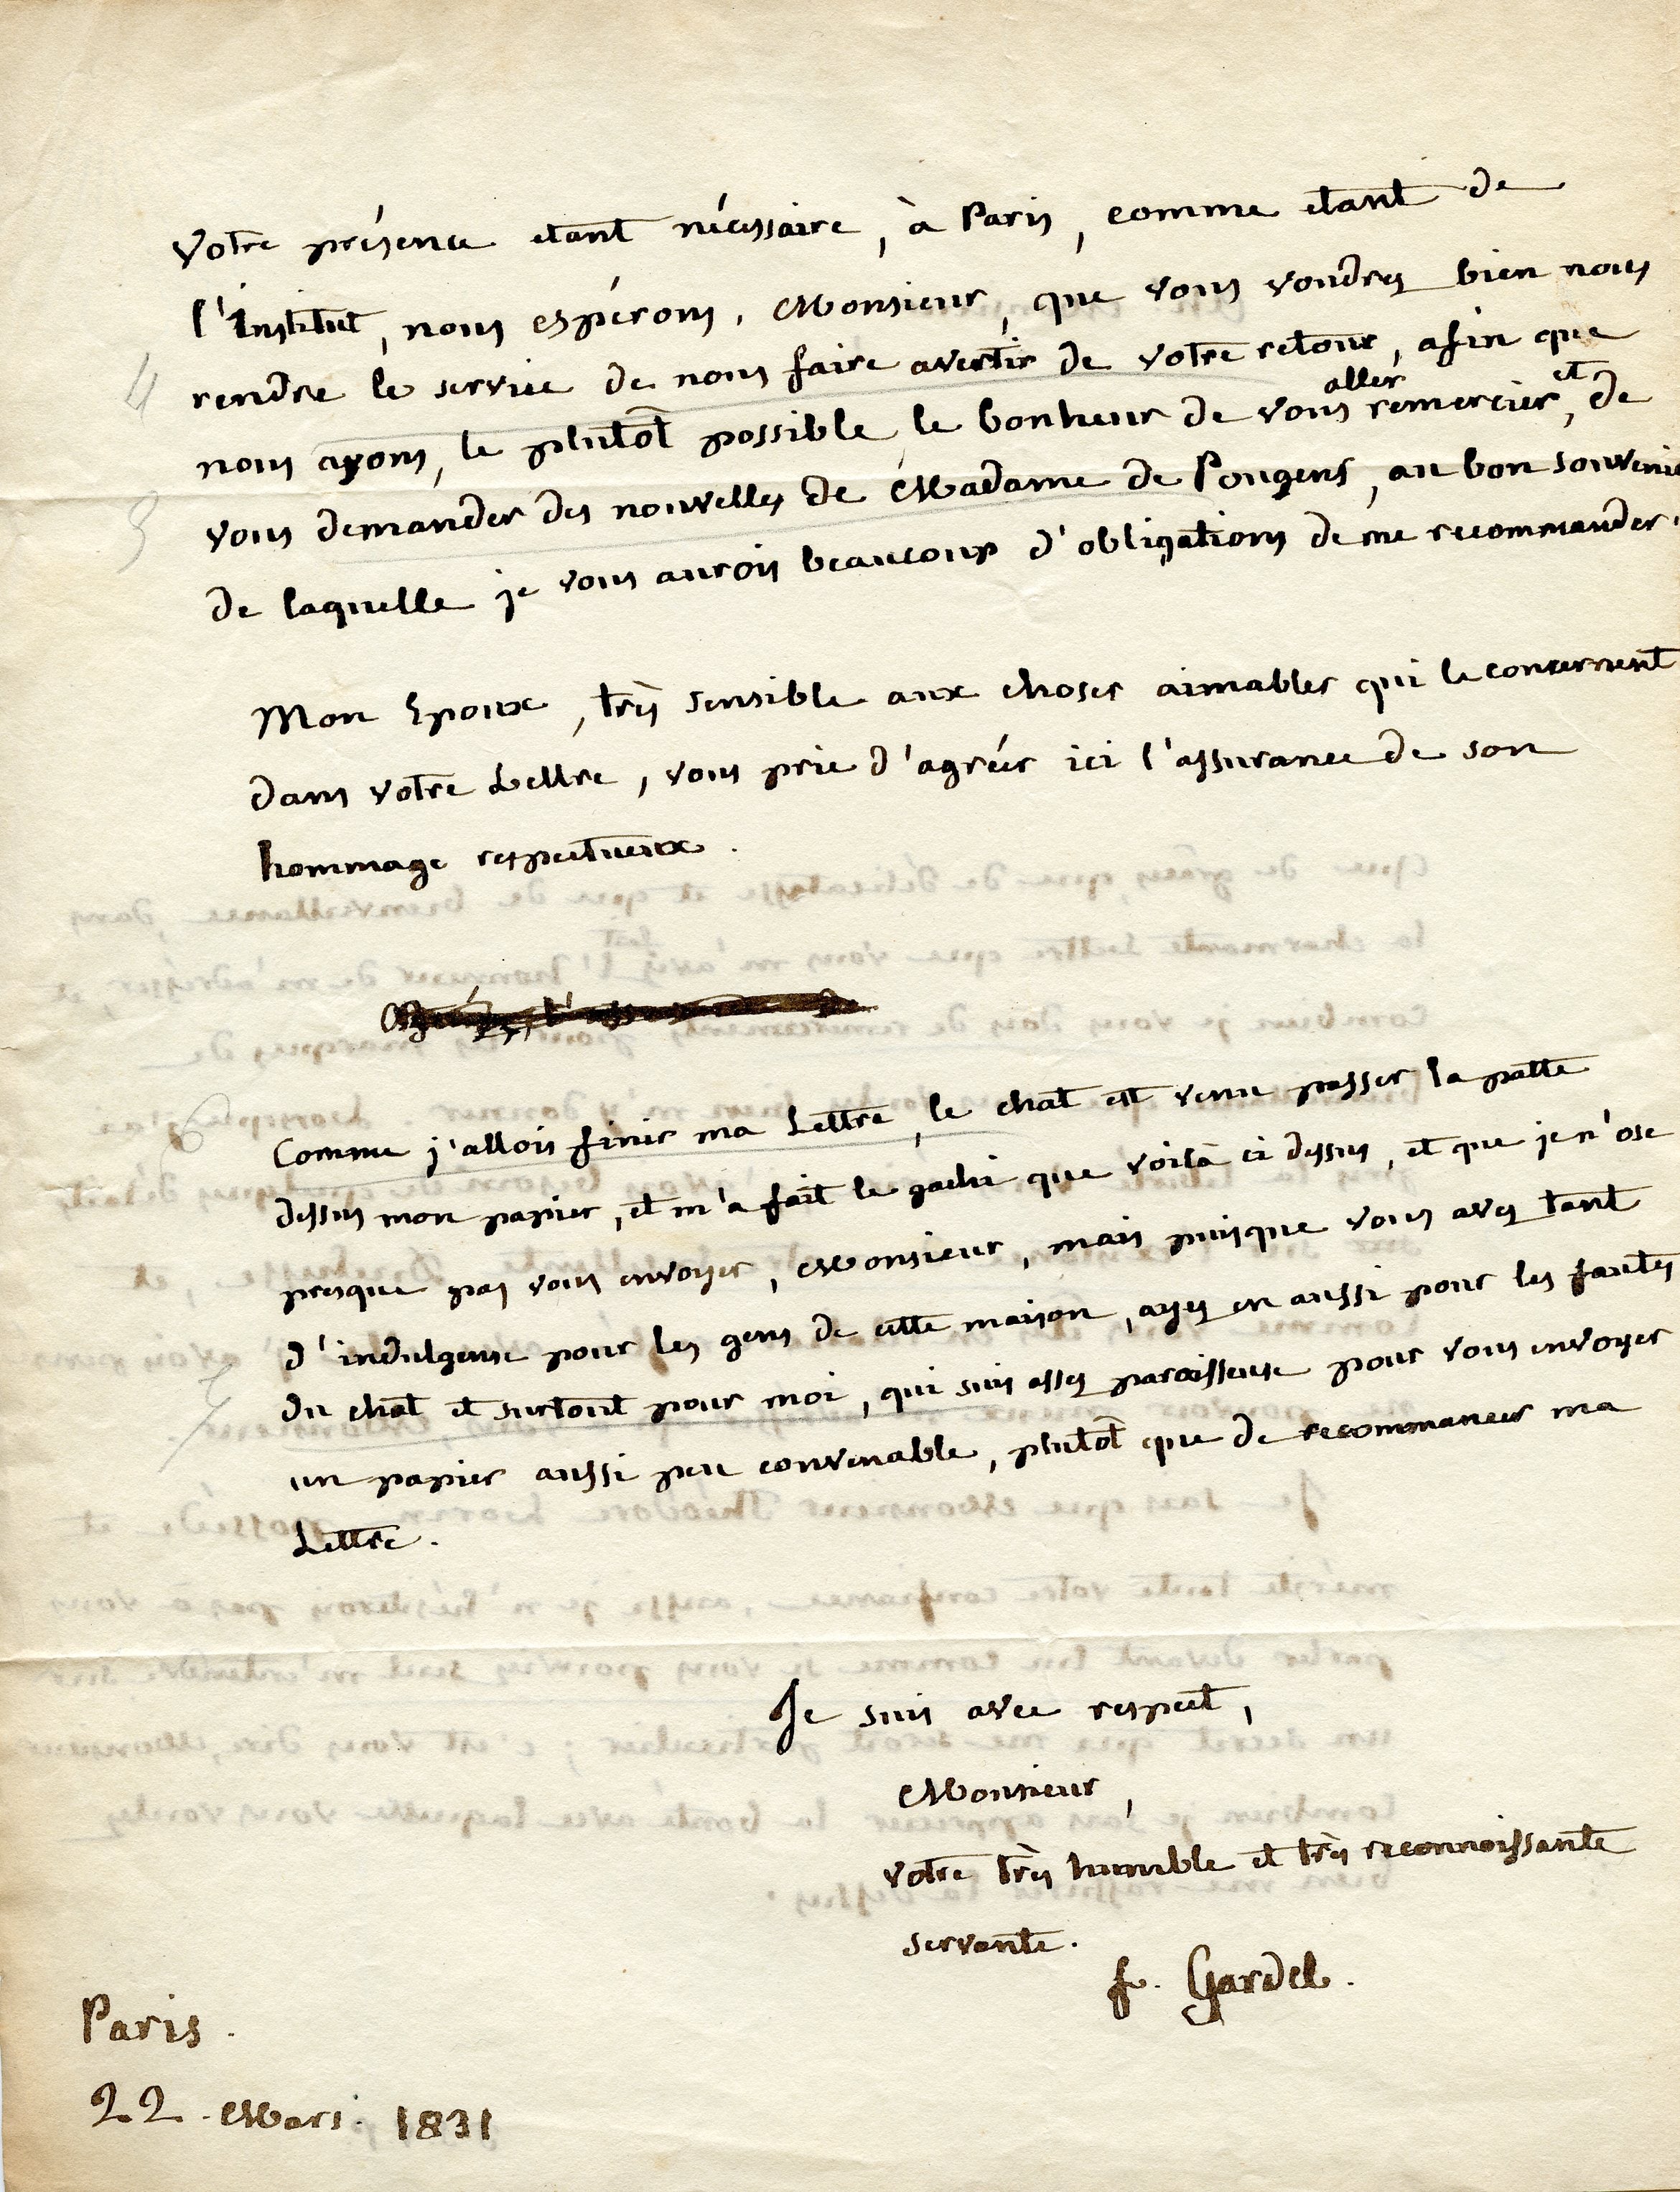 Votre présence etant nécessaire, à Paris, comme etant de
l'institut, nous espérons, Monsieur, que vous voudrez bien nous
4 rendre le service de nous faire avertir de votre retour, afin que
nous ayons, le plutôt possible le bonheur de vous aller remercier, et de
5 vous demander des nouvelles de Madame de Pougens, au bon souvenir
de laquelle je vous aurois beaucoup d'obligations de me recommander.
Mon Epoux, très sensible aux choses aimables qui le concernent
dans votre Lettre, vous prie d'agréer ici l'assurance de son
hommage respectueux.
6 Comme j'allois finir ma Lettre, le chat est venu passer la patte
dessus mon papier, et m'a fait le gachi que voilà ci dessus, et que je n'ose
presque pas vous envoyer, Monsieur, mais puisque vous avez tant
d'indulgense pour les gens de cette maison, ayez en aussi pour les fautes
7 du chat et surtout pour moi, qui suis assez paroisseuse pour vous envoyer
un papier aussi peu convenable, plutôt que de recommancer ma
Lettre.
Je suis avec respect,
Monsieur,
votre très humble et très reconnoissante
servante.
f. Gardel.
Paris.
22. Mars. 1831